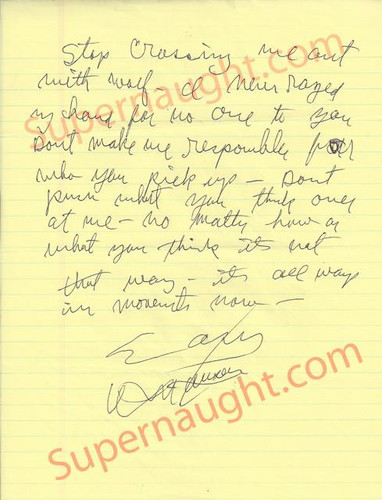 Stop Crossing me out
with wolf - I never raged
my hand for no one to you
Dont make me responsible for
who you pick up - Dont
push what you think over
at me - no matty how or
what you think its not
that way - its all ways
in movents now -
Easy
Supernaught.com
Supernaught.com
Supernaught.com
Supernaught.com